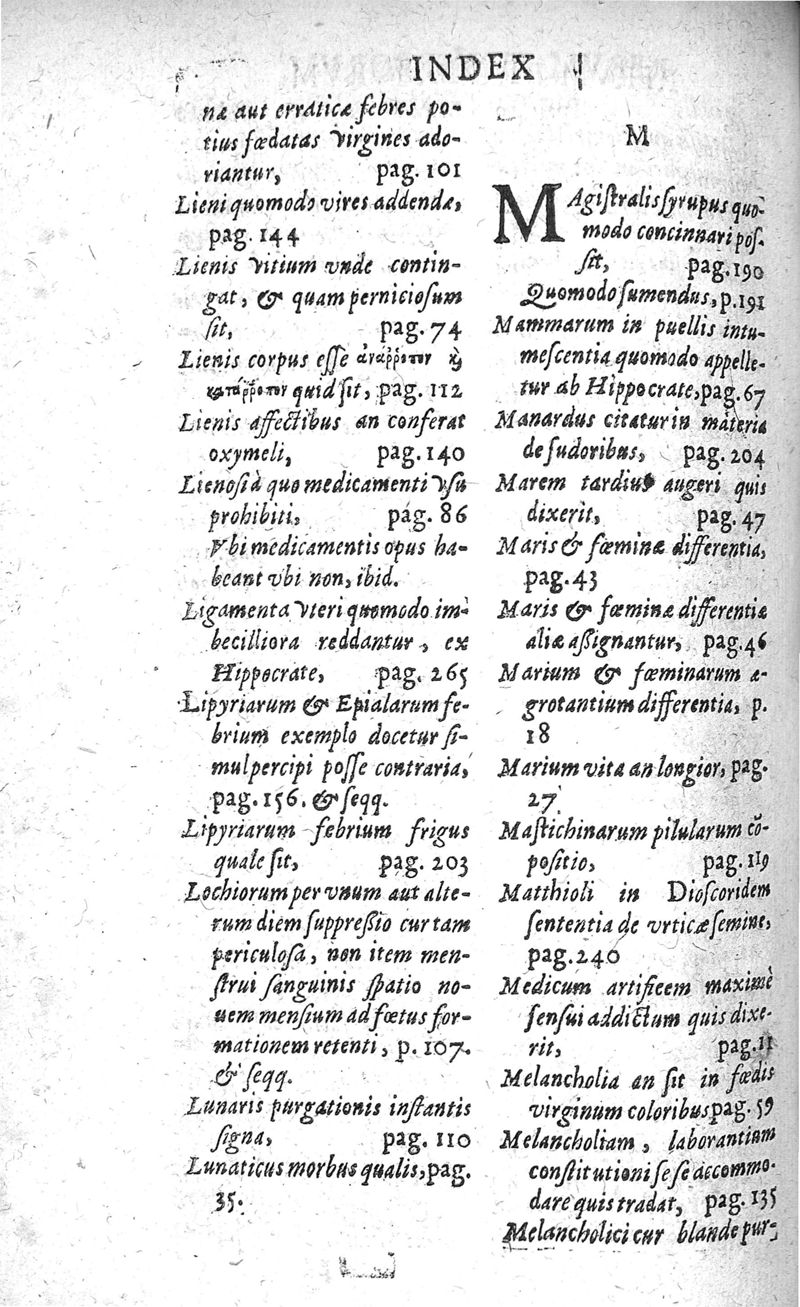 INDEX
næ aut erraticæ febres po-
tius fœdatas Virgines ado-
riantur, pag. 101
Lieni quomodo vires addendæ,
pag. 144
Lienis Vitium vnde contin-
gat, & quam perniciosum
sit, pag. 74
Lienis corpus esse ἀνάῤῥοπον ϗ
κατάῤῥοπον quid sit, pag. 112
Lienis affectibus an conferat
oxymeli, pag. 140
Lienosi à quo medicamenti Vsu
prohibiti, pag. 86
Vbi medicamentis opus ha-
beant vbi non, ibid.
Ligamenta Vteri quomodo im-
becilliora reddantur, ex
Hippocrate, pag. 265
Lipyriarum & Epialarum fe-
brium exemplo docetur si-
mul percipi posse contraria,
pag. 156. & seqq.
Lipyriarum febrium frigus
quale sit, pag. 203
Lochiorum per vnum aut alte-
rum diem suppressio cur tam
periculosa, non item men-
strui sanguinis spatio no-
uem mensium ad fœtus for-
mationem retenti, p. 107.
& seqq.
Lunaris purgationis instantis
signa, pag. 110
Lunaticus morbus qualis, pag.
35.
M
MAgistralis syrupus quo-
modo concinnari pos-
sit, pag. 190
Quomodo sumendus, p. 191
Mammarum in puellis intu-
mescentia quomodo appelle-
tur ab Hippocrate, pag. 67
Manardus citatur in materia
de sudoribus, pag. 204
Marem tardius augeri quis
dixerit, pag. 47
Maris & fœminæ differentia,
pag. 43
Maris & fœminæ differentiæ
aliæ assignantur, pag. 46
Marium & fœminarum æ-
grotantium differentia, p.
18
Marium vita an longior, pag.
27
Mastichinarum pilularum cõ-
positio, pag. 119
Matthioli in Dioscoridem
sententia de vrticæ semine,
pag. 240
Medicum artificem maximè
sensui addictum quis dixe-
rit, pag. 11
Melancholia an sit in fœdis
virginum coloribus pag. 59
Melancholiam, laborantium
constitutioni sese accommo-
dare quis tradat, pag. 135
Melancholici cur blande pur-